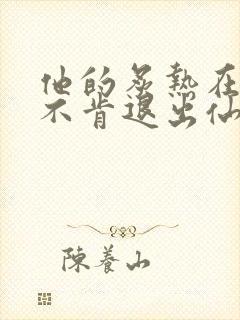 他的炙熱在
不肯退出仙
陳養山